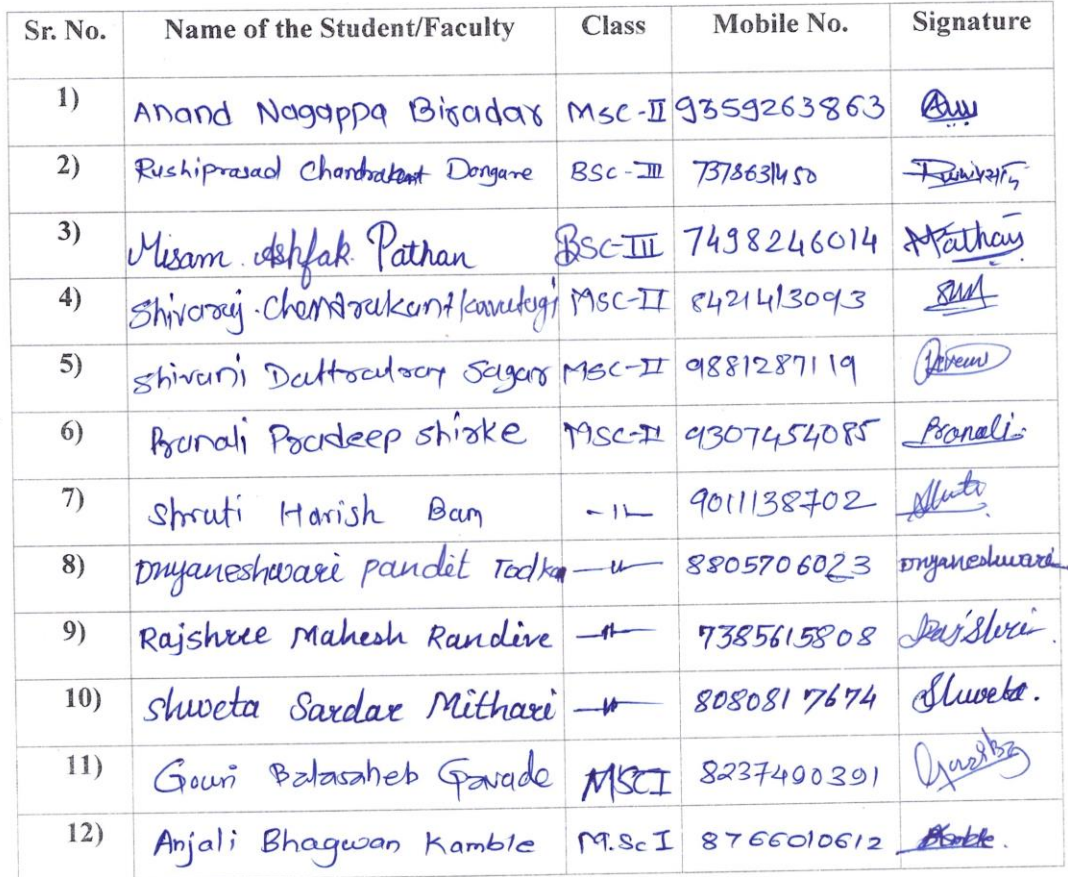 Sr. No. Name of the Student/Faculty Class Mobile No. Signature
1) Anand Nagappa Biradar MSC-II 9359263863
2) Rushiprasad Chandrakant Dongare BSC-III 7378631450
3) Misam Ashfak Pathan BSC-III 7498246014 MPathan
4) Shivaraj Chandrakant Kavatagi MSC-II 8421413093
5) Shivani Dattatray Sagar MSC-II 9881287119
6) Pranali Pradeep Shirke MSC-II 9307454085 Pranali
7) Shruti Harish Bam -11- 9011138702
8) Dnyaneshwari pandit Todkar -11- 8805706023 Dnyaneshwari
9) Rajshree Mahesh Randive -11- 7385615808 Rajshri
10) Shweta Sardar Mithari -11- 8080817674 Shweta.
11) Gouri Balasaheb Gavade MSCI 8237490391
12) Anjali Bhagwan Kamble M.Sc I 8766010612 Kamble.